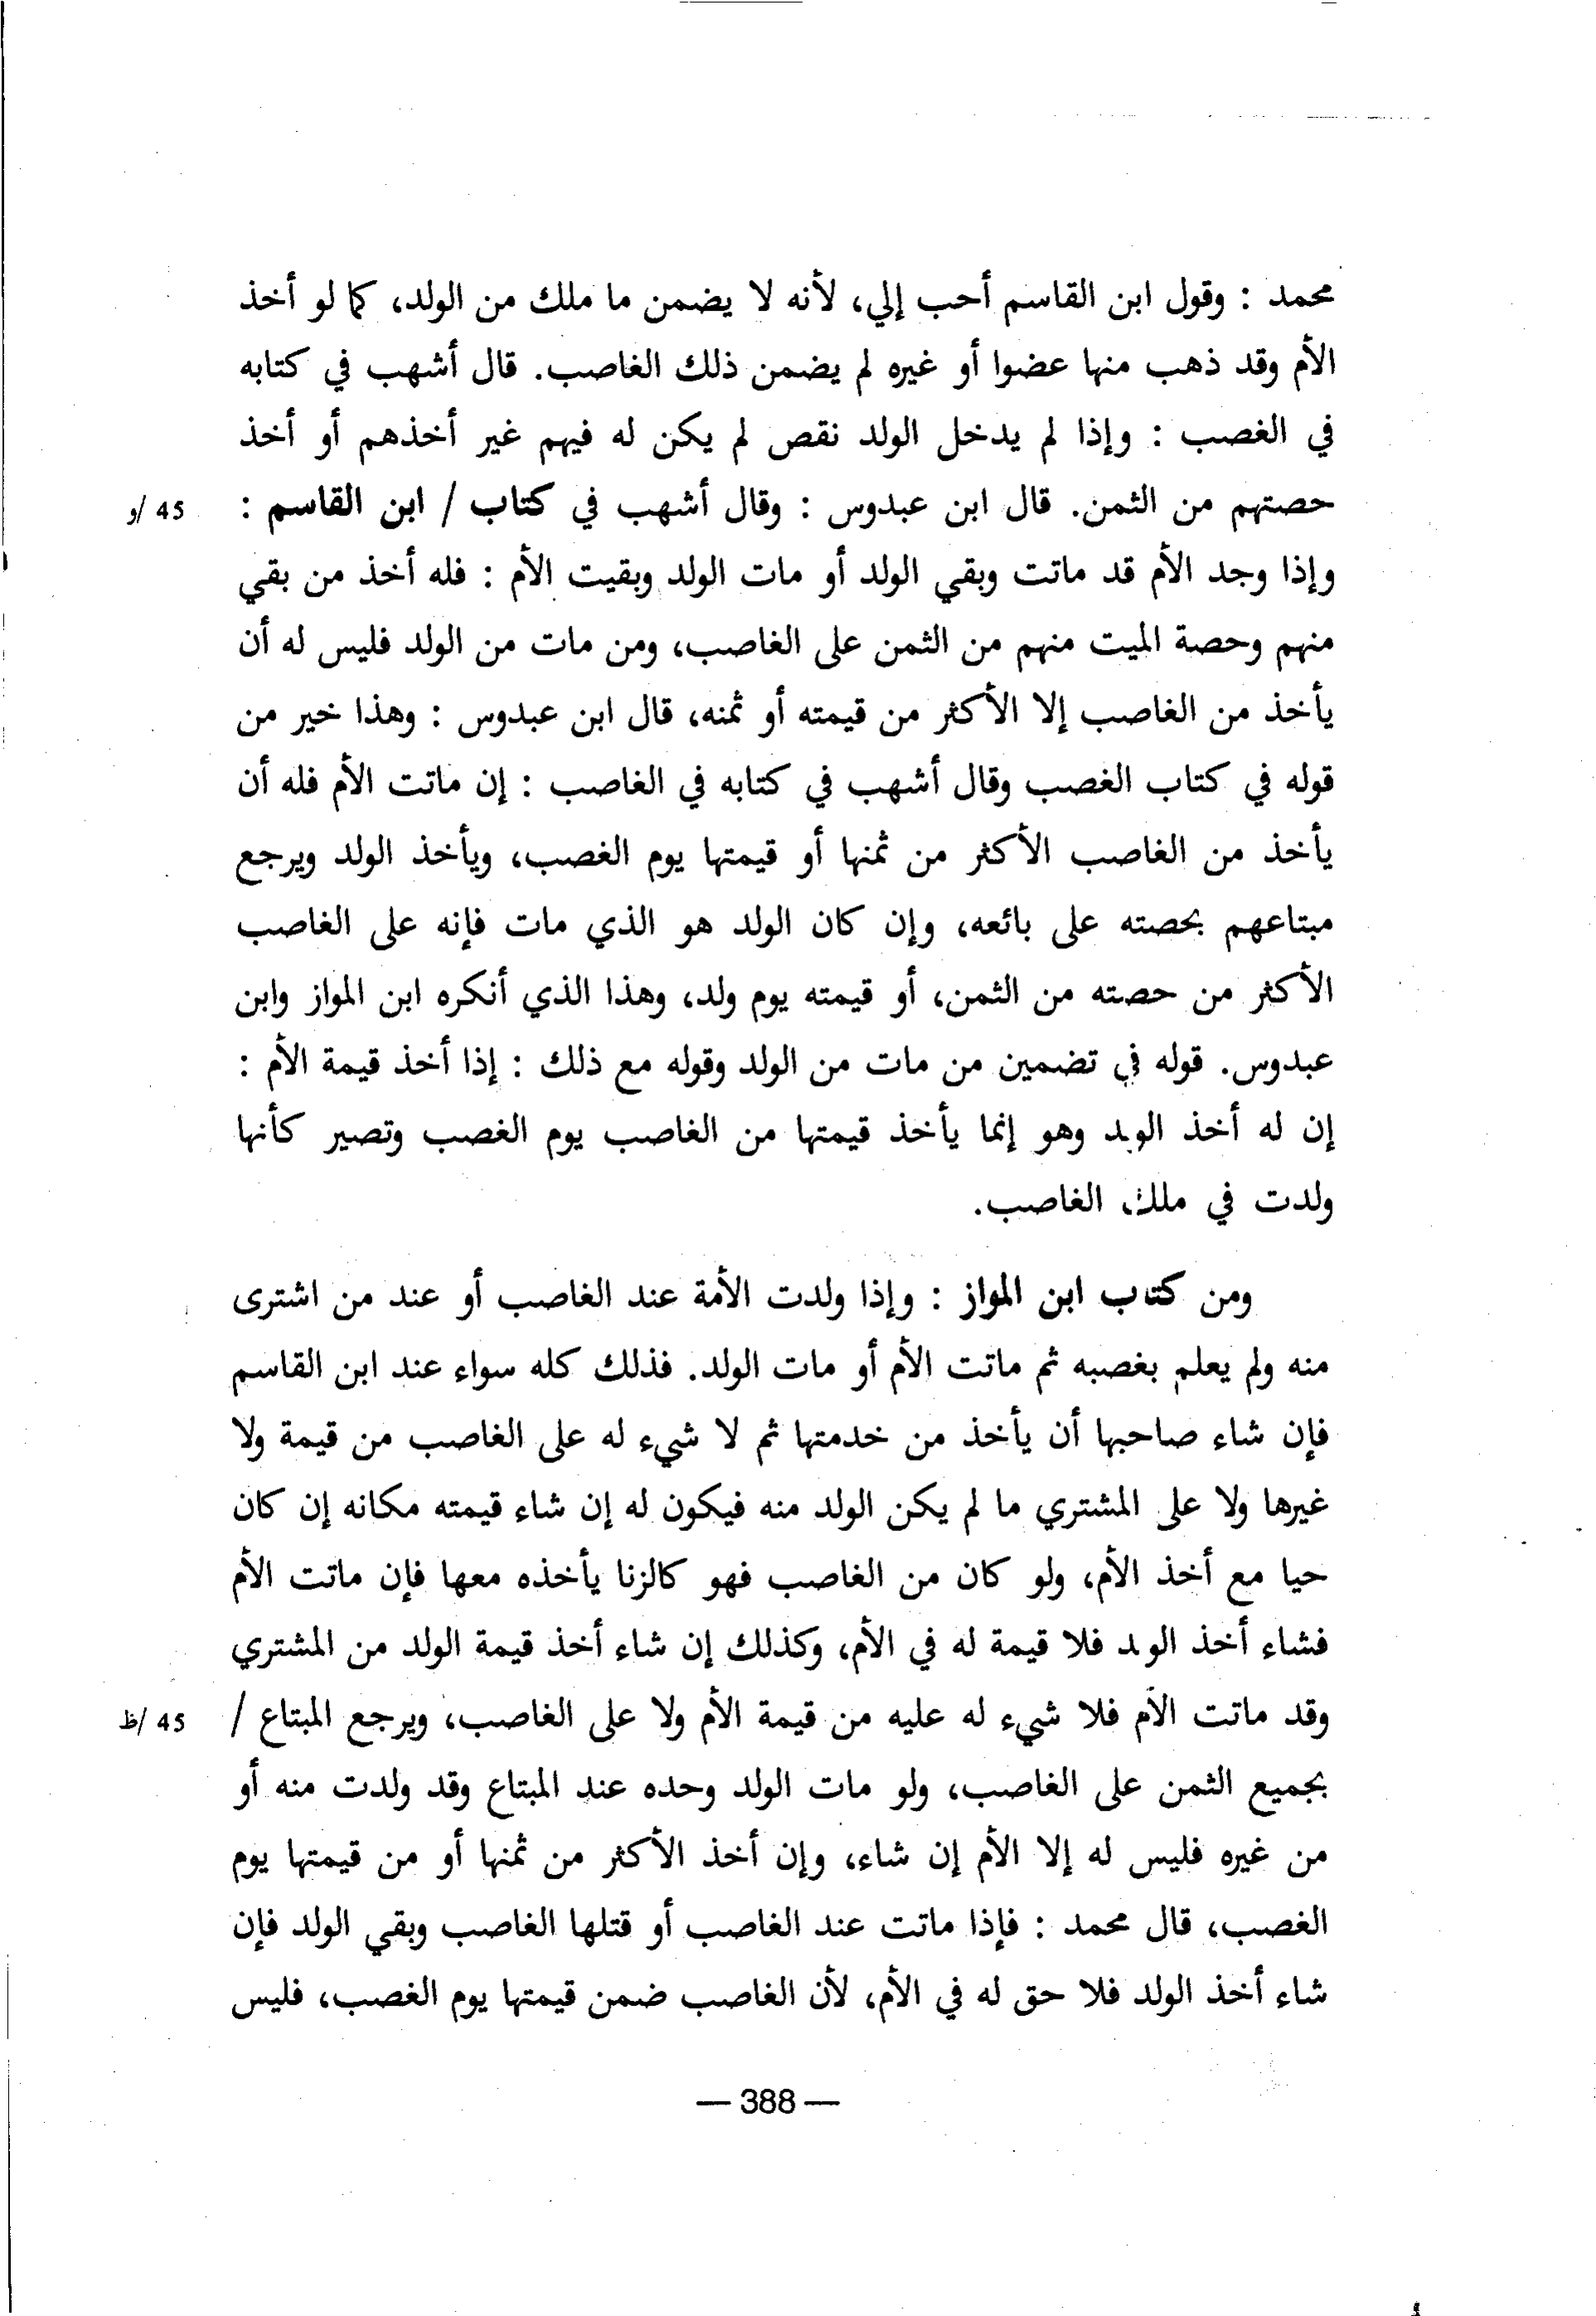 محمد : وقول ابن القاسم أحب إلي، لأنه لا يضمن ما ملك من الولد، كما لو أخذ
الأم وقد ذهب منها عضوا أو غيره لم يضمن ذلك الغاصب. قال أشهب في كتابه
في الغصب : وإذا لم يدخل الولد نقص لم يكن له فيهم غير أخذهم أو أخذ
حصتهم من الثمن. قال ابن عبدوس : وقال أشهب في كتاب / ابن القاسم : 45 /و
وإذا وجد الأم قد ماتت وبقي الولد أو مات الولد وبقيت الأم : فله أخذ من بقي
منهم وحصة الميت منهم من الثمن على الغاصب، ومن مات من الولد فليس له أن
يأخذ من الغاصب إلا الأكثر من قيمته أو ثمنه، قال ابن عبدوس : وهذا خير من
قوله في كتاب الغصب وقال أشهب في كتابه في الغاصب : إن ماتت الأم فله أن
يأخذ من الغاصب الأكثر من ثمنها أو قيمتها يوم الغصب، ويأخذ الولد ويرجع
مبتاعهم بحصته على بائعه، وإن كان الولد هو الذي مات فإنه على الغاصب
الأكثر من حصته من الثمن، أو قيمته يوم ولد، وهذا الذي أنكره ابن المواز وابن
عبدوس. قوله في تضمين من مات من الولد وقوله مع ذلك : إذا أخذ قيمة الأم :
إن له أخذ الولد وهو إنما يأخذ قيمتها من الغاصب يوم الغصب وتصير كأنها
ولدت في ملك الغاصب.
ومن كتاب ابن المواز : وإذا ولدت الأمة عند الغاصب أو عند من اشترى
منه ولم يعلم بغصبه ثم ماتت الأم أو مات الولد. فذلك كله سواء عند ابن القاسم
فإن شاء صاحبها أن يأخذ من خدمتها ثم لا شيء له على الغاصب من قيمة ولا
غيرها ولا على المشتري ما لم يكن الولد منه فيكون له إن شاء قيمته مكانه إن كان
حيا مع أخذ الأم، ولو كان من الغاصب فهو كالزنا يأخذه معها فإن ماتت الأم
فشاء أخذ الولد فلا قيمة له في الأم، وكذلك إن شاء أخذ قيمة الولد من المشتري
وقد ماتت الأم فلا شيء له عليه من قيمة الأم ولا على الغاصب، ويرجع المبتاع / 45 /ظ
بجميع الثمن على الغاصب، ولو مات الولد وحده عند المبتاع وقد ولدت منه أو
من غيره فليس له إلا الأم إن شاء، وإن أخذ الأكثر من ثمنها أو من قيمتها يوم
الغصب، قال محمد : فإذا ماتت عند الغاصب أو قتلها الغاصب وبقي الولد فإن
شاء أخذ الولد فلا حق له في الأم، لأن الغاصب ضمن قيمتها يوم الغصب، فليس
— 388 —